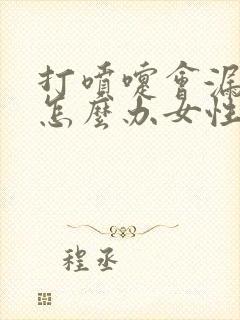 打噴嚏會漏
怎麼办女性
程丞